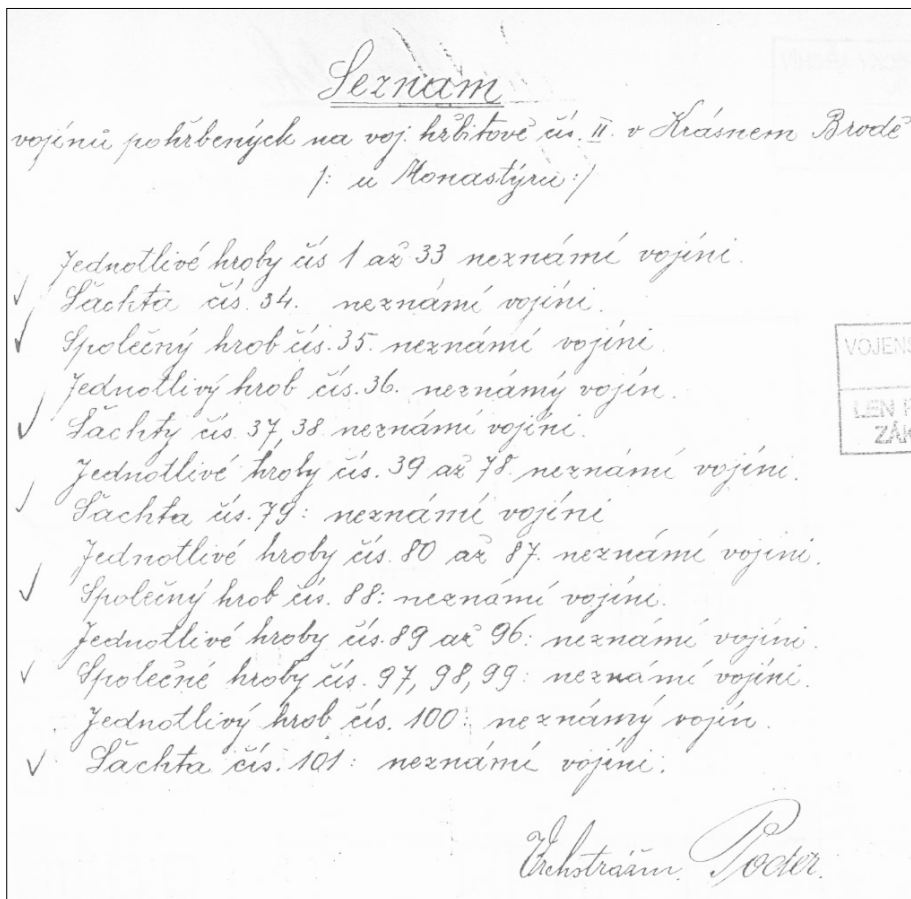 Seznam
vojínů pohřbených na voj. hřbitově čís. II. v Krásnem Brodě
/: u Monastýru :/
Jednotlivé hroby čís 1 až 33 neznámí vojíni.
Šachta čís. 34. neznámí vojíni.
Společný hrob čís. 35. neznámí vojíni.
Jednotlivý hrob čís. 36. neznámý vojín.
Šachty čís. 37, 38. neznámí vojíni.
Jednotlivé hroby čís. 39 až 78. neznámí vojíni.
Šachta čís. 79: neznámí vojíni
Jednotlivé hroby čís. 80 až 87. neznámí vojíni.
Společný hrob čís. 88: neznámí vojíni.
Jednotlivé hroby čís. 89 až 96: neznámí vojíni.
Společné hroby čís. 97, 98, 99: neznámí vojíni.
Jednotlivý hrob čís. 100: neznámý vojín.
Šachta čís. 101: neznámí vojíni.
VOJENS
LEN
ZÁK
Vrchstrážm. Poder.